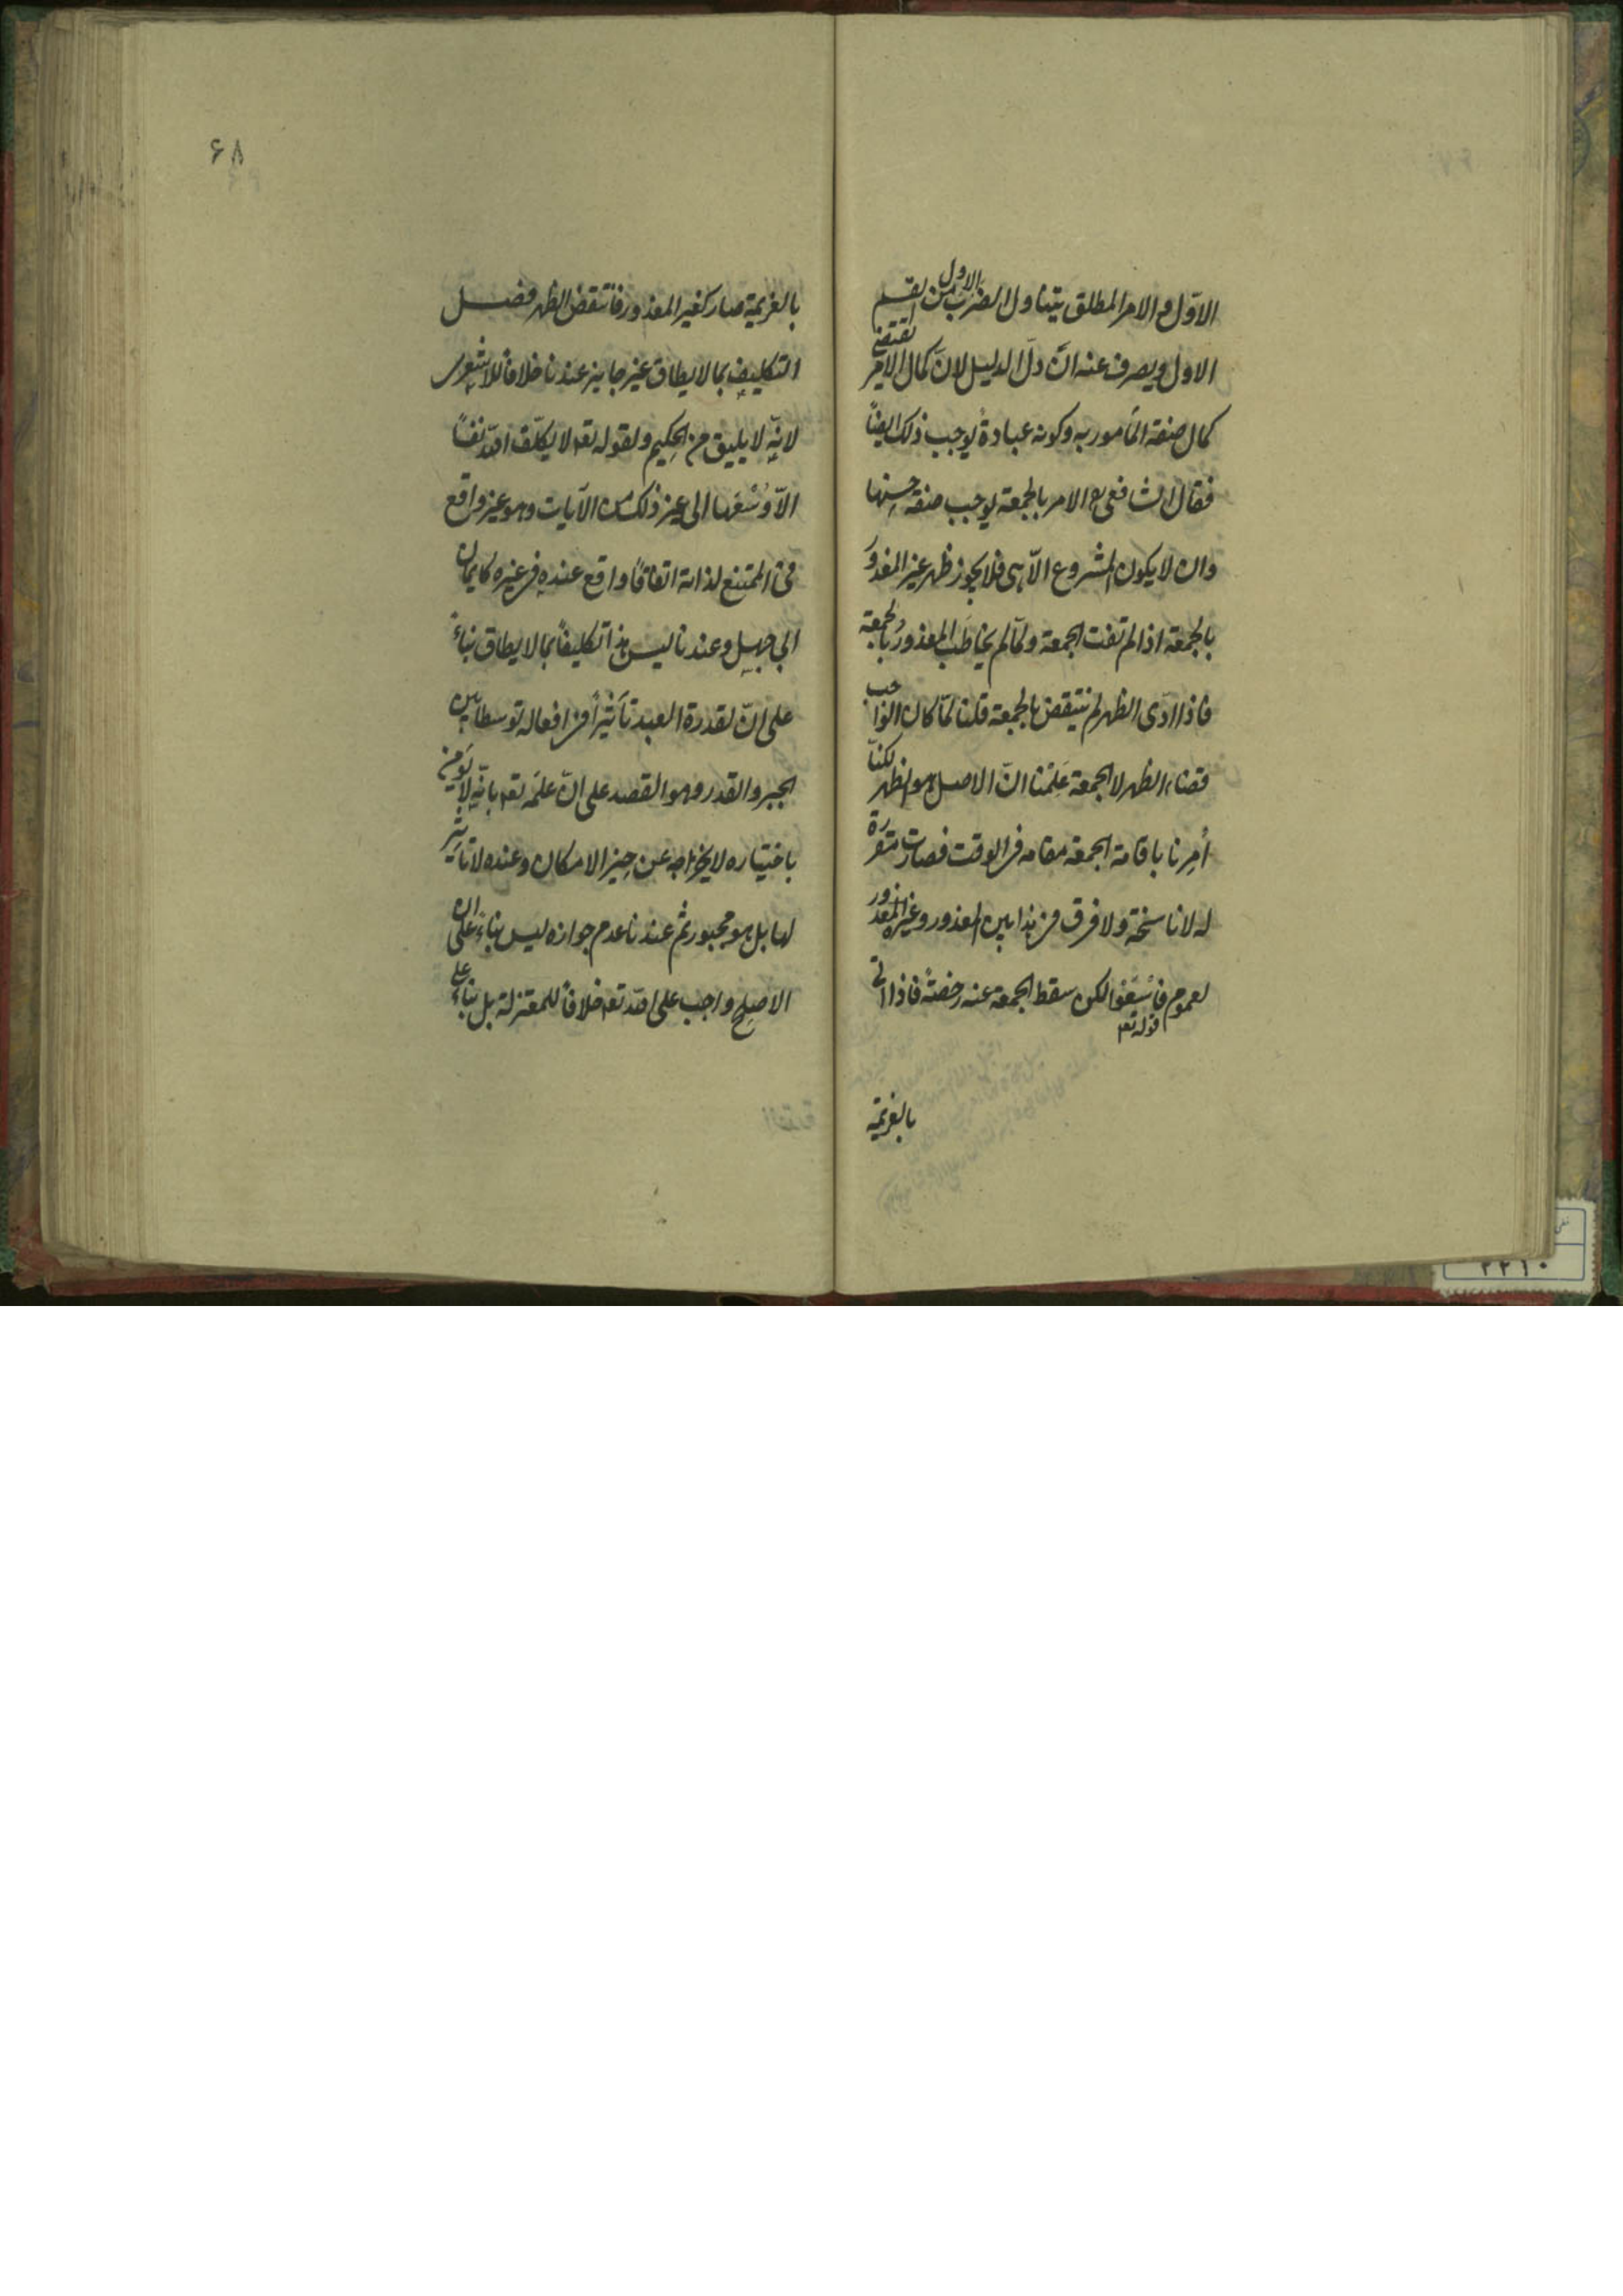 الاوّل والامر المطلق يتناول الضرب الاول من القسم
الاول ويصرف عنه ان دلّ الدليل لانّ كمال الامر يقتضى
كمال صفة المأمور به وكونه عبادة يوجب ذلك ايضًا
فقال الشافعى رح الامر بالجمعة يوجب صفة حسنها
وان لا يكون المشروع الّا هى فلا يجوز ظهر غير المعذور
بالجمعة اذا لم تفت الجمعة ولمّا لم يخاطَب المعذورُ بالجمعة
فاذا ادّى الظهر لم ينتقض بالجمعة قلنا لمّا كان الواجب
قضاء الظهر لا الجمعة عَلِمْنا انّ الاصل هو الظهر لكنّا
أُمِرنا باقامة الجمعة مقامه فى الوقت فصارت مقررة
له لا ناسخة ولا فرق فى هذا بين المعذور وغير المعذور
لعموم قوله تع فاسْعَوْا لكن سقط الجمعة عنه رخصةً فاذا اتى
بالعزيمة
۶۸
بالعزيمة صار كغير المعذور فانتقض الظهر فصل
التكليف بما لا يطاق غير جايز عندنا خلافًا للاشعرى
لانّه لا يليق من الحكيم ولقوله تع لا يكلّف الله نفسًا
الّا وُسْعَها الى غير ذلك من الآيات وهو غير واقع
فى الممتنع لذاته اتفاقًا واقع عنده فى غيره كايمان
ابى جهل وعندنا ليس هذا تكليفًا بما لا يطاق بناءً
على انّ لقدرة العبد تأثيرًا فى افعاله توسطا بين
الجبر والقدر وهو القصد على انّ علمَه تع بانّه لا يؤمن
باختياره لا يخرجه عن حيز الامكان وعنده لا تأثير
لها بل هو مجبور ثم عندنا عدم جوازه ليس بناءً على ان
الاصلح واجب على الله تع خلافًا للمعتزلة بل بناءً على